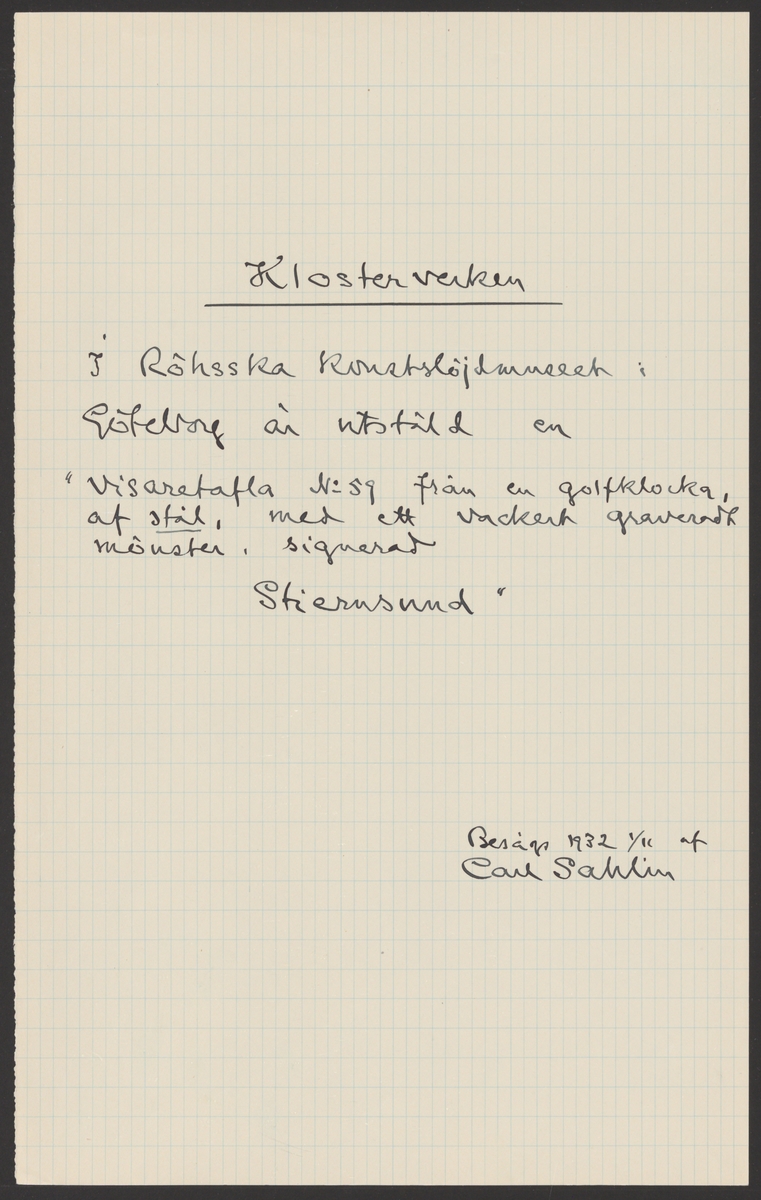 Klosterverken
I Röhsska Konstslöjdmuseet i
Göteborg är utstäld en
"Visaretafla No 59 från en golfklocka,
af stål, med ett vackert graveradt
mönster. signerad
Stiernsund"
Besågs 1932 1/11 af
Carl Sahlin